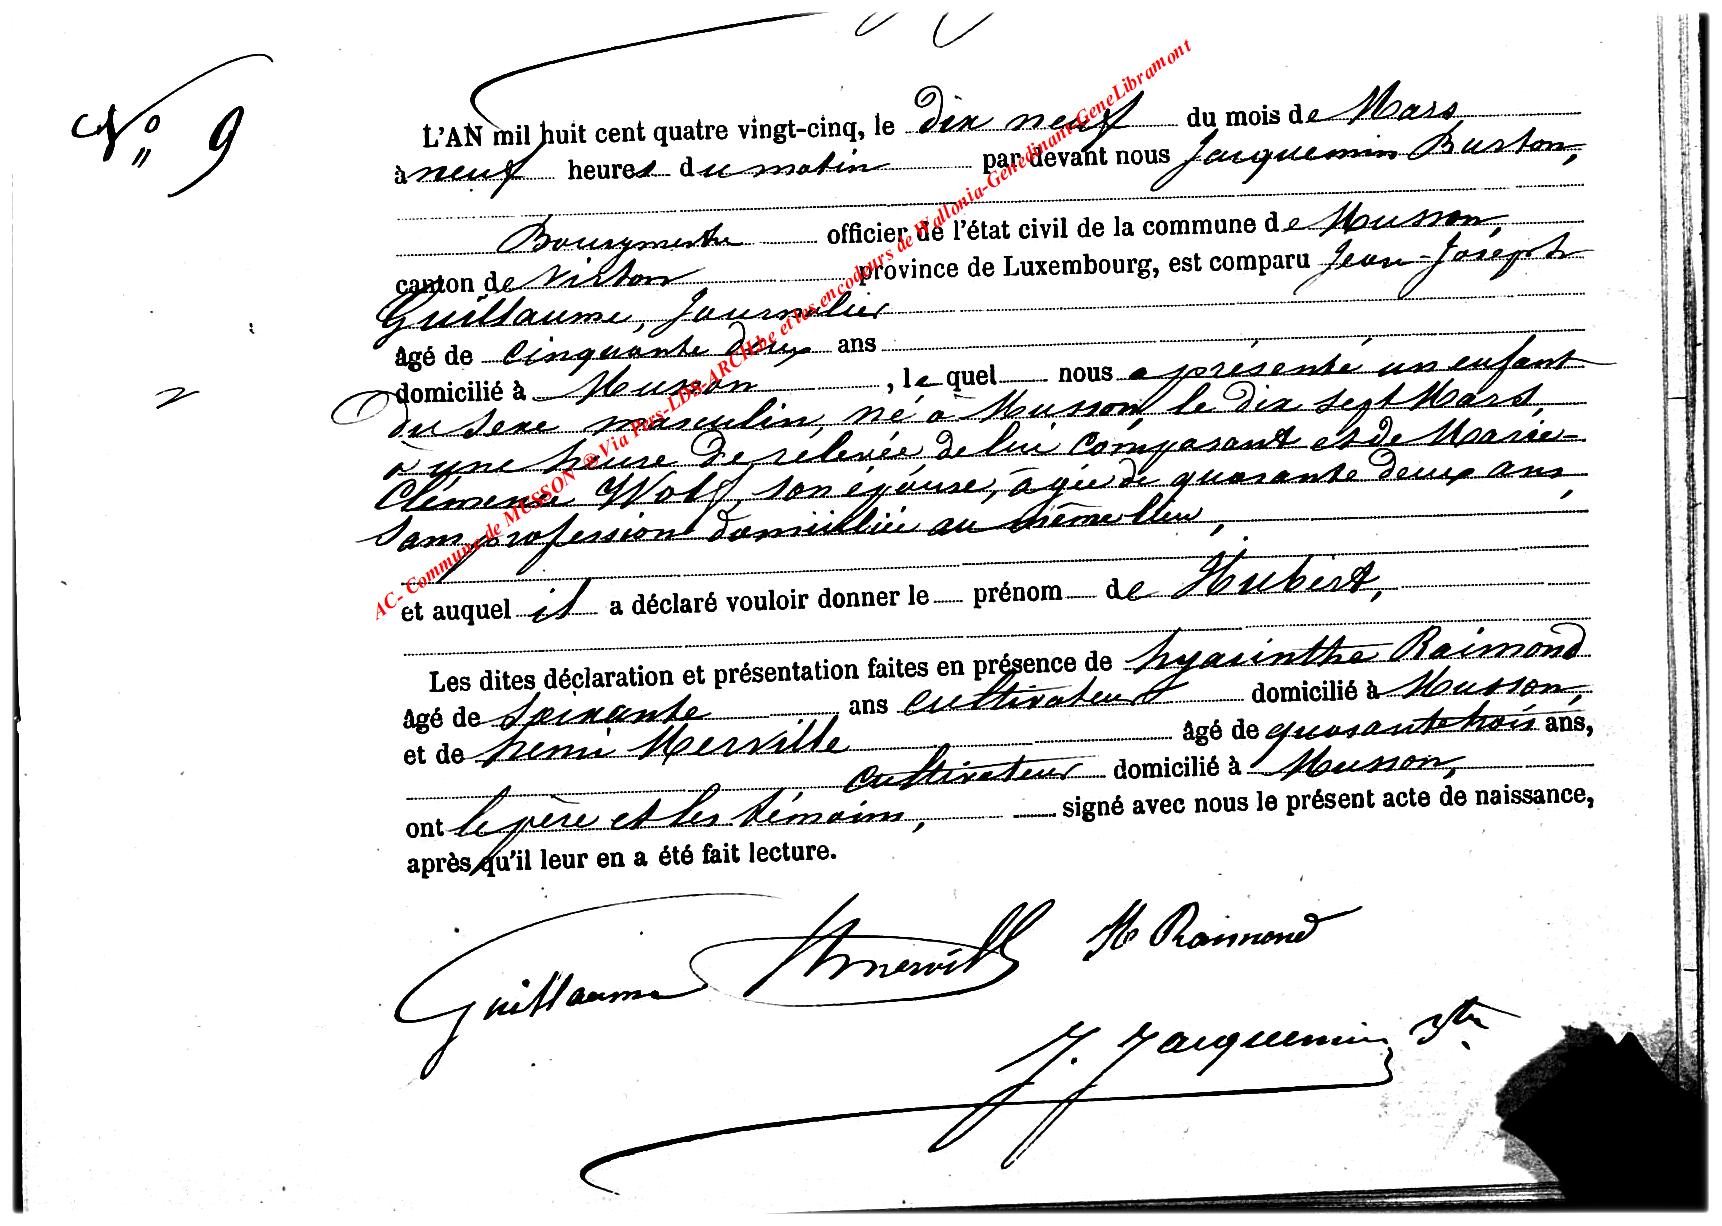 N° 9
L'AN mil huit cent quatre vingt-cinq, le dix neuf du mois de Mars
à neuf heures du matin par devant nous Jacquemin Baston,
Bourgmestre officier de l'état civil de la commune de Musson,
canton de Virton province de Luxembourg, est comparu Jean-Joseph
Guillaume, Journalier
âgé de cinquante deux ans
domicilié à Musson, le quel nous a présenté un enfant
du sexe masculin, né à Musson, le dix sept Mars,
à une heure de rélevée de lui Comparant et de Marie-
Clémence Wolf, son épouse, âgée de quarante deux ans,
Sans profession domiciliée au même lieu,
et auquel il a déclaré vouloir donner le prénom de Hubert,
Les dites déclaration et présentation faites en présence de hyacinthe Raimond
âgé de Soixante ans cultivateur domicilié à Musson,
et de henri Merville âgé de quarante trois ans,
cultivateur domicilié à Musson,
ont le père et les témoins, signé avec nous le présent acte de naissance,
après qu'il leur en a été fait lecture.
Guillaume Hmerville H Raimond
J. Jacquemin
AC- Commune de MUSSON ® Via Pers-LDS-ARCH.be et les encodeurs de Wallonia-Genedinant-GeneLibramont